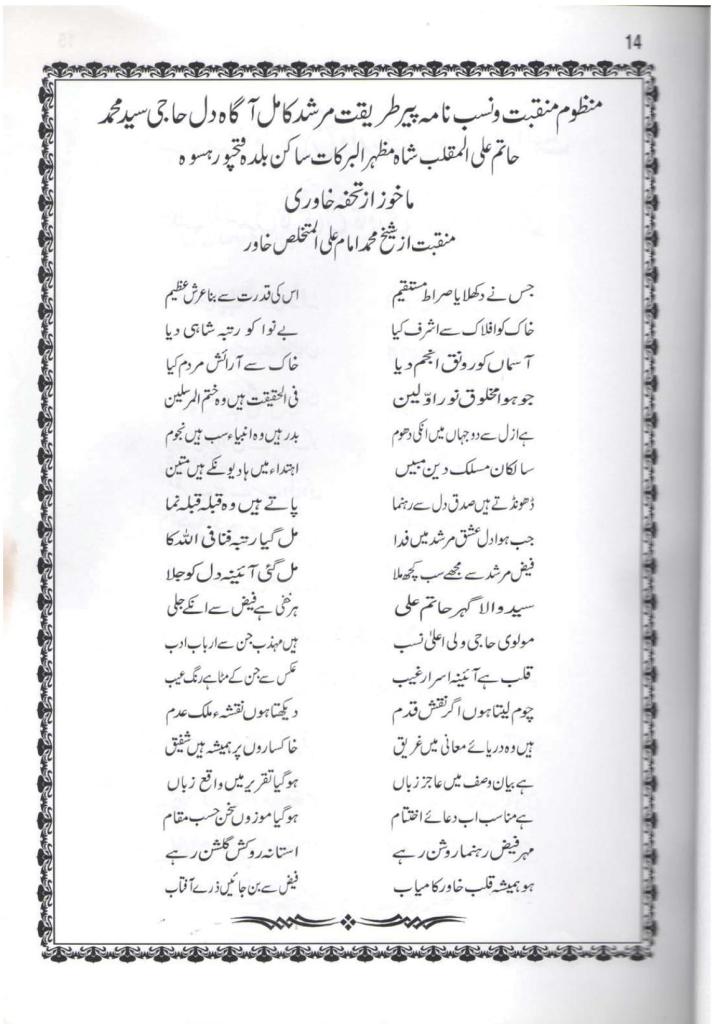 14
منظوم منقبت و نسب نامہ پیر طریقت مرشد کامل آگاہ دل حاجی سید محمد
حاتم علی المقلب شاہ مظہر البرکات ساکن بلدہ فتحپور ہسوہ
ماخوز از تحفہ خاوری
منقبت از شیخ محمد امام علی المتخلص خاور
جس نے دکھلایا صراط مستقیم اس کی قدرت سے بنا عرش عظیم
خاک کو افلاک سے اشرف کیا بے نوا کو رتبہ شاہی دیا
آسماں کو رونق انجم دیا خاک سے آرائش مردم کیا
جو ہوا مخلوق نور اوّلین فی الحقیقت ہیں وہ ختم المرسلین
ہے ازل سے دو جہاں میں انکی دھوم بدر ہیں وہ انبیاء سب ہیں نجوم
سالکان مسلک دین مبیں اہتداء میں ہادیو نکے ہیں متین
ڈھونڈتے ہیں صدق دل سے رہنما پاتے ہیں وہ قبلہ قبلہ نما
جب ہوا دل عشق مرشد میں فدا مل گیا رتبہ فنا فی اللہ کا
فیض مرشد سے مجھے سب کچھ ملا مل گئی آئینہ دل کو جلا
سید والا گہر حاتم علی ہر خفی ہے فیض سے انکے جلی
مولوی حاجی ولی اعلیٰ نسب ہیں مہذب جن سے ارباب ادب
قلب ہے آئینہ اسرار غیب عکس سے جن کے مٹا ہے رنگ عیب
چوم لیتا ہوں اگر نقش قدم دیکھتا ہوں نقشہء ملک عدم
ہیں وہ دریائے معانی میں غریق خاکساروں پر ہمیشہ ہیں شفیق
ہے بیان وصف میں عاجز زباں ہو گیا تقریر میں واقع زباں
ہے مناسب اب دعائے اختتام ہو گیا موزوں سخن حسب مقام
مہر فیض رہنما روشن رہے استانہ روکش گلشن رہے
ہو ہمیشہ قلب خاور کامیاب فیض سے بن جائیں ذرے آفتاب